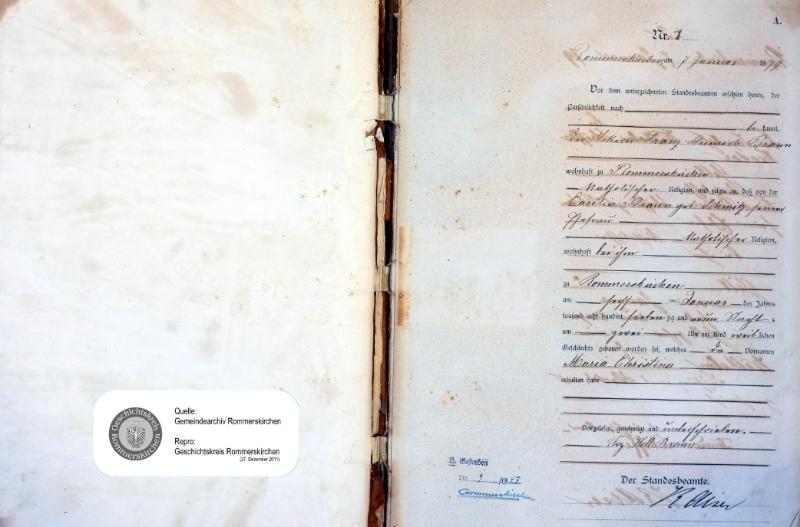 A.
Nr. 1
Rommerskirchen am 7 Januar 1879
Vor dem unterzeichneten Standesbeamten erschien heute, der
Persönlichkeit nach
be kannt,
der Franz Heinrich Braun
wohnhaft zu Rommerskirchen
Katholischer Religion, und zeigte an, daß von der
Caecilia Braun geb Schmitz seiner
Ehefrau
Katholischer Religion,
wohnhaft bei ihm
zu Rommerskirchen
am sechs ten Januar des Jahres
tausend acht hundert sieben zig und neun Nacht s
um zwei Uhr ein Kind weib lichen
Geschlechts geboren worden sei, welches die Vornamen
Maria Christina
erhalten habe
Vorgelesen, genehmigt und unterschrieben.
Braun
Der Standesbeamte.
H. Gestorben
Nr. 9 /19
Rommerskirchen
Geschichtskreis Rommerskirchen
Quelle:
Gemeindearchiv Rommerskirchen
Repro:
Geschichtskreis Rommerskirchen
(27. Dezember 2011)